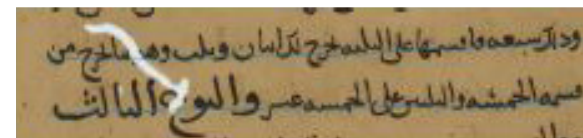 وذلك سبعه فاقسمها على الثلثه يخرج لك اثنان وثلث وهو ما خرج من
قسمه الخمسه والثلثين على الخمسه عشر والنوع الثالث